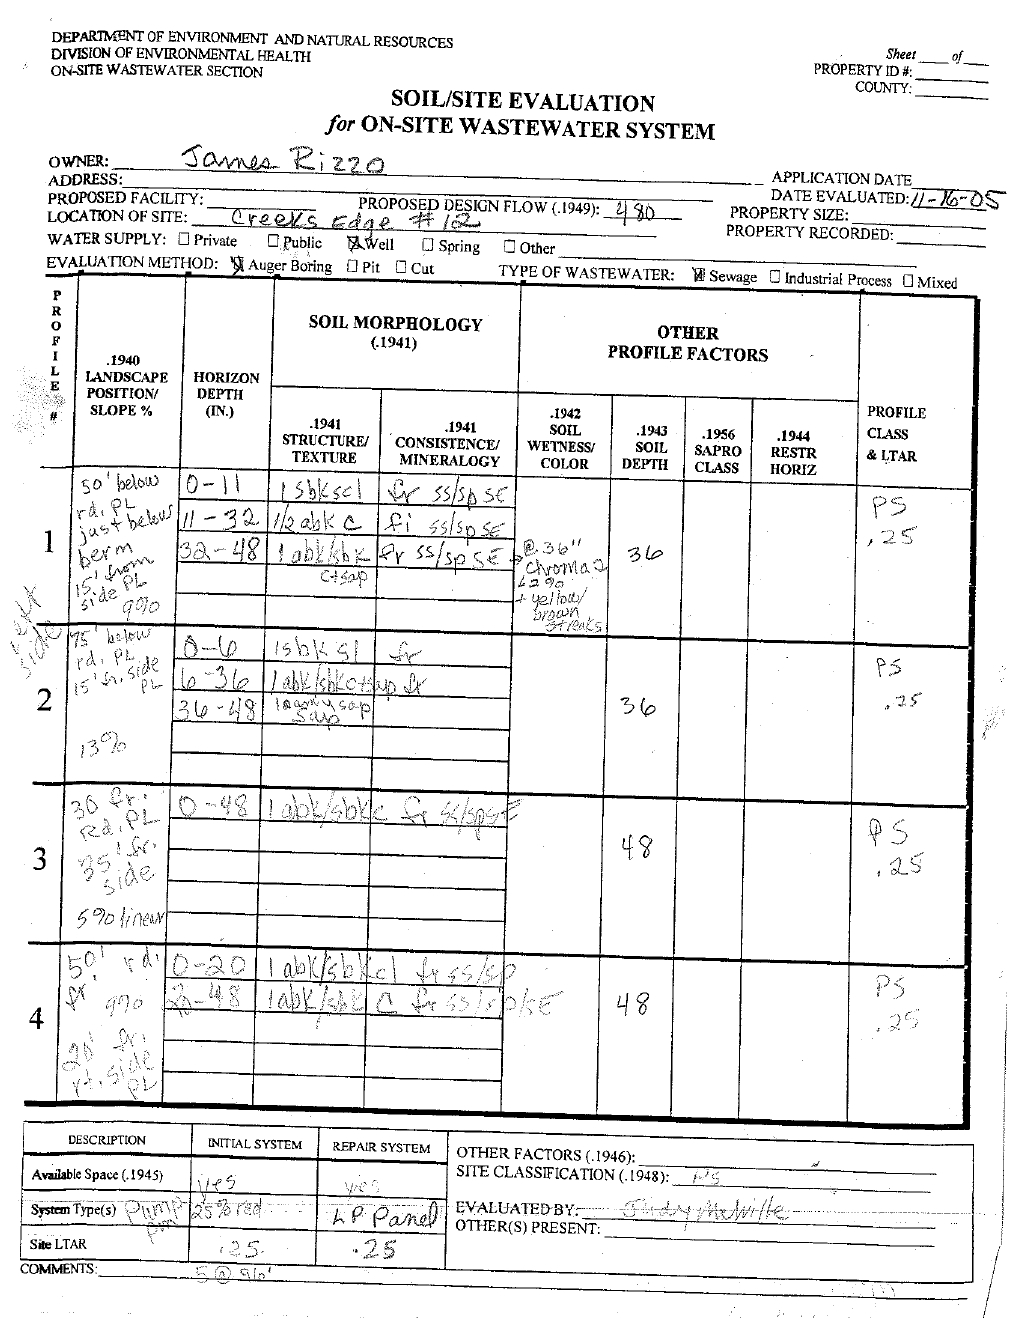 DEPARTMENT OF ENVIRONMENT AND NATURAL RESOURCES
DIVISION OF ENVIRONMENTAL HEALTH
ON-SITE WASTEWATER SECTION
Sheet ___ of ___
PROPERTY ID #:
COUNTY:
SOIL/SITE EVALUATION
for ON-SITE WASTEWATER SYSTEM
OWNER: James Rizzo
ADDRESS:
APPLICATION DATE
PROPOSED FACILITY: PROPOSED DESIGN FLOW (.1949): 480 DATE EVALUATED: 11-16-05
LOCATION OF SITE: Creeks Edge #12 PROPERTY SIZE:
PROPERTY RECORDED:
WATER SUPPLY: ☐ Private ☐ Public ☒ Well ☐ Spring ☐ Other
EVALUATION METHOD: ☒ Auger Boring ☐ Pit ☐ Cut TYPE OF WASTEWATER: ☒ Sewage ☐ Industrial Process ☐ Mixed
PROFILE #
.1940 LANDSCAPE POSITION/ SLOPE %
HORIZON DEPTH (IN.)
SOIL MORPHOLOGY (.1941)
OTHER PROFILE FACTORS
.1941 STRUCTURE/ TEXTURE
.1941 CONSISTENCE/ MINERALOGY
.1942 SOIL WETNESS/ COLOR
.1943 SOIL DEPTH
.1956 SAPRO CLASS
.1944 RESTR HORIZ
PROFILE CLASS & LTAR
1
50' below
rd. PL
just below
berm
15' from
side PL
9%
0-11 1sbkscl fr ss/sp SE
11-32 1/2 abk C fi ss/sp SE
32-48 1 abk/sbk fr ss/sp SE
c+sap
@ 36"
Chroma 2
+ yellow/
brown
streaks
36
PS
.25
side
2
75' below
rd. PL
15' fr. side
PL
13%
0-6 1sbk sl fr
6-36 1abk/sbkc+sap fr
36-48 loamy sap
36
PS
.25
3
30 fr.
rd. PL
35' fr.
side
5% linear
0-48 1abk/sbkc fr ss/spSE
48
PS
.25
4
50' rd.
fr
9%
20' fr.
rt. side
PL
0-20 1abk/sbkcl fr ss/sp
20-48 1abk/sbk C fr ss/sp/SE
48
PS
.25
DESCRIPTION INITIAL SYSTEM REPAIR SYSTEM
Available Space (.1945) yes yes
System Type(s) Pump 25% red LP Panel
Site LTAR .25 .25
COMMENTS: 5 @ 96'
OTHER FACTORS (.1946):
SITE CLASSIFICATION (.1948): PS
EVALUATED BY: Judy Melville
OTHER(S) PRESENT: